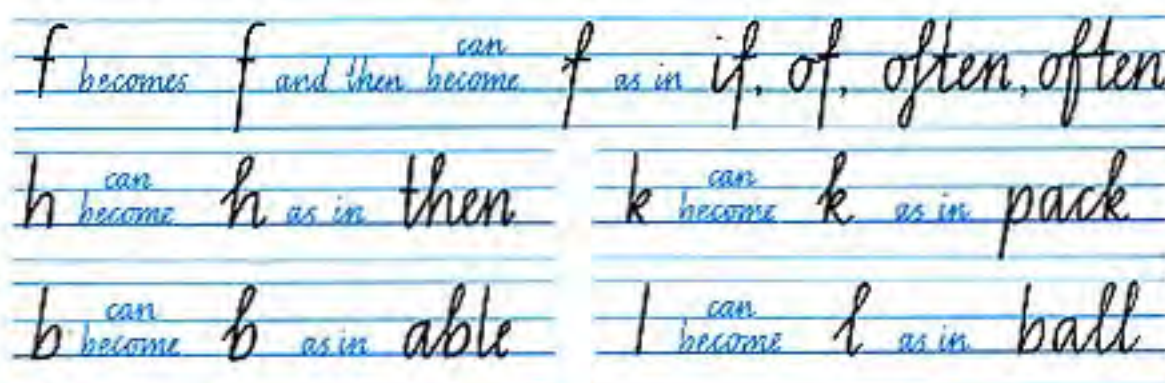 f becomes f and then can become f as in if, of, often, often
h can become h as in then
k can become k as in pack
b can become b as in able
l can become l as in ball